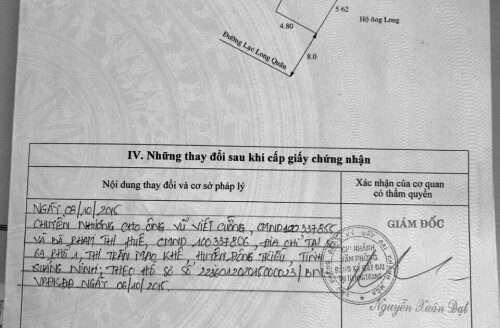 5.62
4.80
Hộ ông Long
Đường Lạc Long Quân
8.0
IV. Những thay đổi sau khi cấp giấy chứng nhận
Nội dung thay đổi và cơ sở pháp lý
Xác nhận của cơ quan
có thẩm quyền
NGÀY 08/10/2015
CHUYỂN NHƯỢNG CHO ÔNG VŨ VIẾT CƯỜNG, CMND
VÀ BÀ PHẠM THỊ HUỆ, CMND 100337806, ĐỊA CHỈ TẠI SỐ
PHỐ 1, THỊ TRẤN MẠO KHÊ, HUYỆN ĐÔNG TRIỀU, TỈNH
QUẢNG NINH; THEO HỒ SƠ SỐ
VPĐKĐĐ NGÀY 06/10/2015.
GIÁM ĐỐC
CHI NHÁNH
VĂN PHÒNG
ĐĂNG KÝ ĐẤT ĐAI
Nguyễn Xuân Đạt